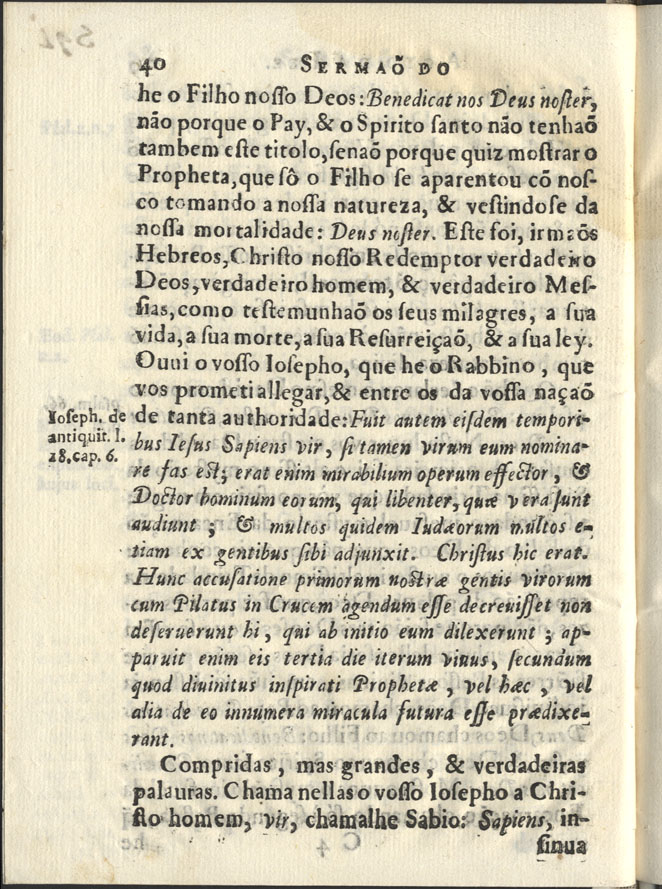 40 SERMAÕ DO
he o Filho noſſo Deos: Benedicat nos Deus noſter,
não porque o Pay, & o Spirito ſanto não tenhaõ
tambem eſte titolo, ſenaõ porque quiz moſtrar o
Propheta, que ſô o Filho ſe aparentou cõ noſ-
co tomando a noſſa natureza, & veſtindoſe da
noſſa mortalidade: Deus noſter. Eſte foi, irmaõs
Hebreos, Chriſto noſſo Redemptor verdadeiro
Deos, verdadeiro homem, & verdadeiro Meſ-
ſias, como teſtemunhaõ os ſeus milagres, a ſua
vida, a ſua morte, a ſua Reſurreiçaõ, & a ſua ley.
Ouui o voſſo Ioſepho, que he o Rabbino, que
vos prometi allegar, & entre os da voſſa naçaõ
de tanta authoridade: Fuit autem eiſdem tempori-
bus Ieſus Sapiens vir, ſi tamen virum eum nomina-
re fas eſt; erat enim mirabilium operum effector, &
Doctor hominum eorum, qui libenter, quæ vera ſunt
audiunt; & multos quidem Iudæorum multos e-
tiam ex gentibus ſibi adjunxit. Chriſtus hic erat.
Hunc accuſatione primorum noſtræ gentis virorum
cum Pilatus in Crucem agendum eſſe decreuiſſet non
deſeruerunt hi, qui ab initio eum dilexerunt; ap-
paruit enim eis tertia die iterum viuus, ſecundum
quod diuinitus inſpirati Prophetæ, vel hæc, vel
alia de eo innumera miracula futura eſſe prædixe-
rant.
Compridas, mas grandes, & verdadeiras
palauras. Chama nellas o voſſo Ioſepho a Chri-
ſto homem, vir, chamalhe Sabio: Sapiens, in-
ſinua
Ioſeph. de
antiquit. l.
18. cap. 6.